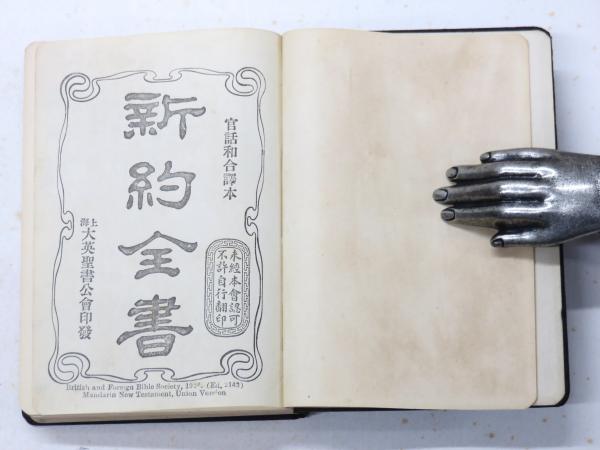 官話和合譯本
新約全書
上海
大英聖書公會印發
未經本會認可
不許自行翻印
British and Foreign Bible Society, (Ed. 2143)
Mandarin New Testament, Union Version